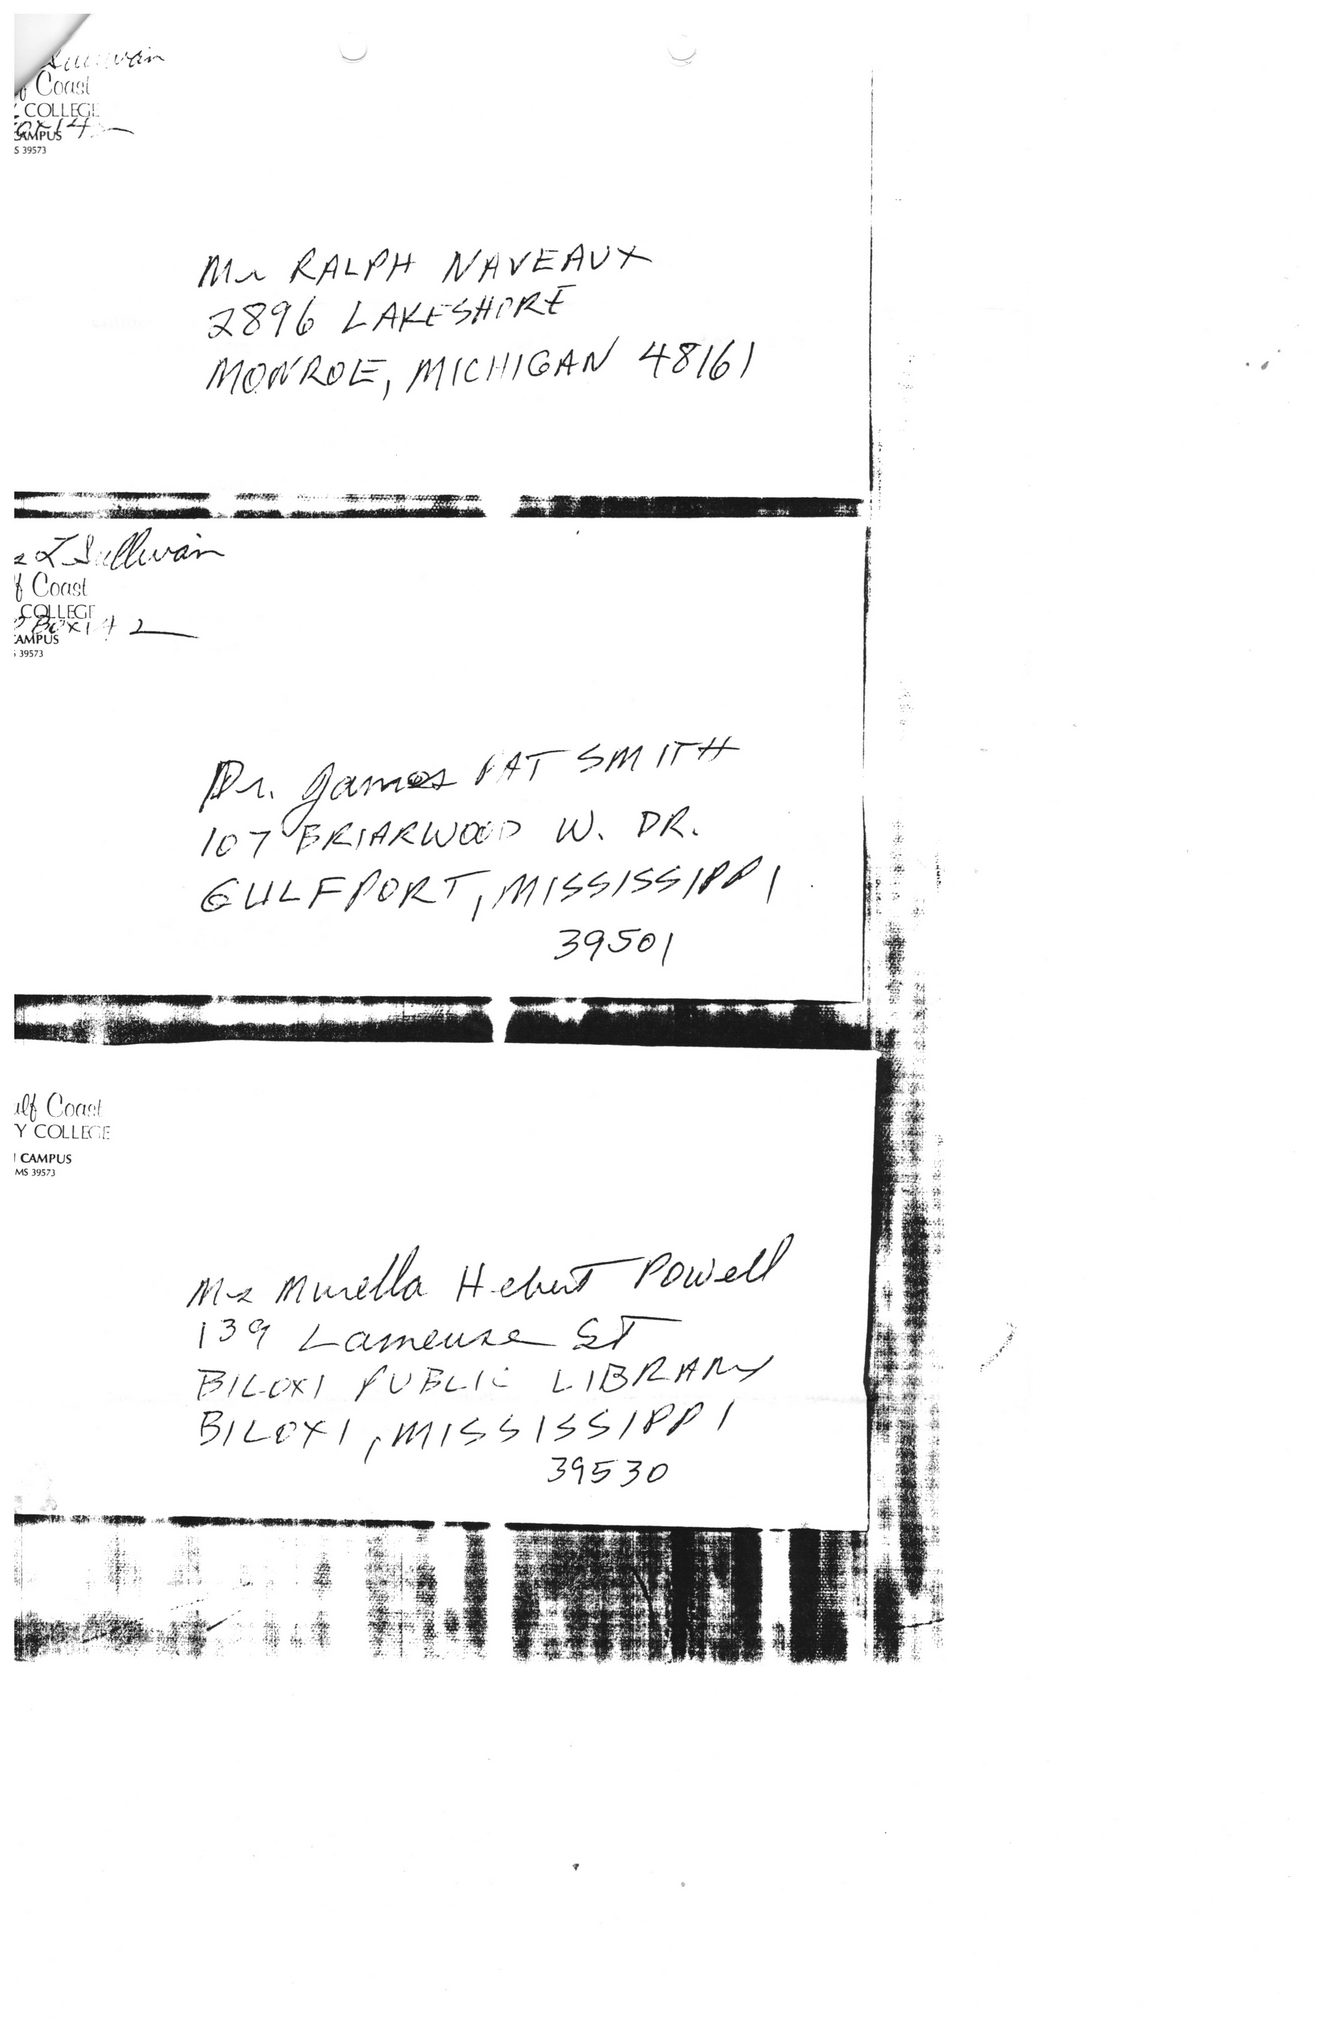 Sullivan
f Coast
COLLEGE
Box 142
CAMPUS
S 39573
Mr RALPH NAVEAUX
2896 LAKESHORE
MONROE, MICHIGAN 48161
L Sullivan
f Coast
COLLEGE
Box 142
AMPUS
39573
Dr. James PAT SMITH
107 BRIARWOOD W. DR.
GULFPORT, MISSISSIPPI
39501
ulf Coast
Y COLLEGE
CAMPUS
MS 39573
Ms Murella Hebert Powell
139 Lameuse ST
BILOXI PUBLIC LIBRARY
BILOXI, MISSISSIPPI
39530